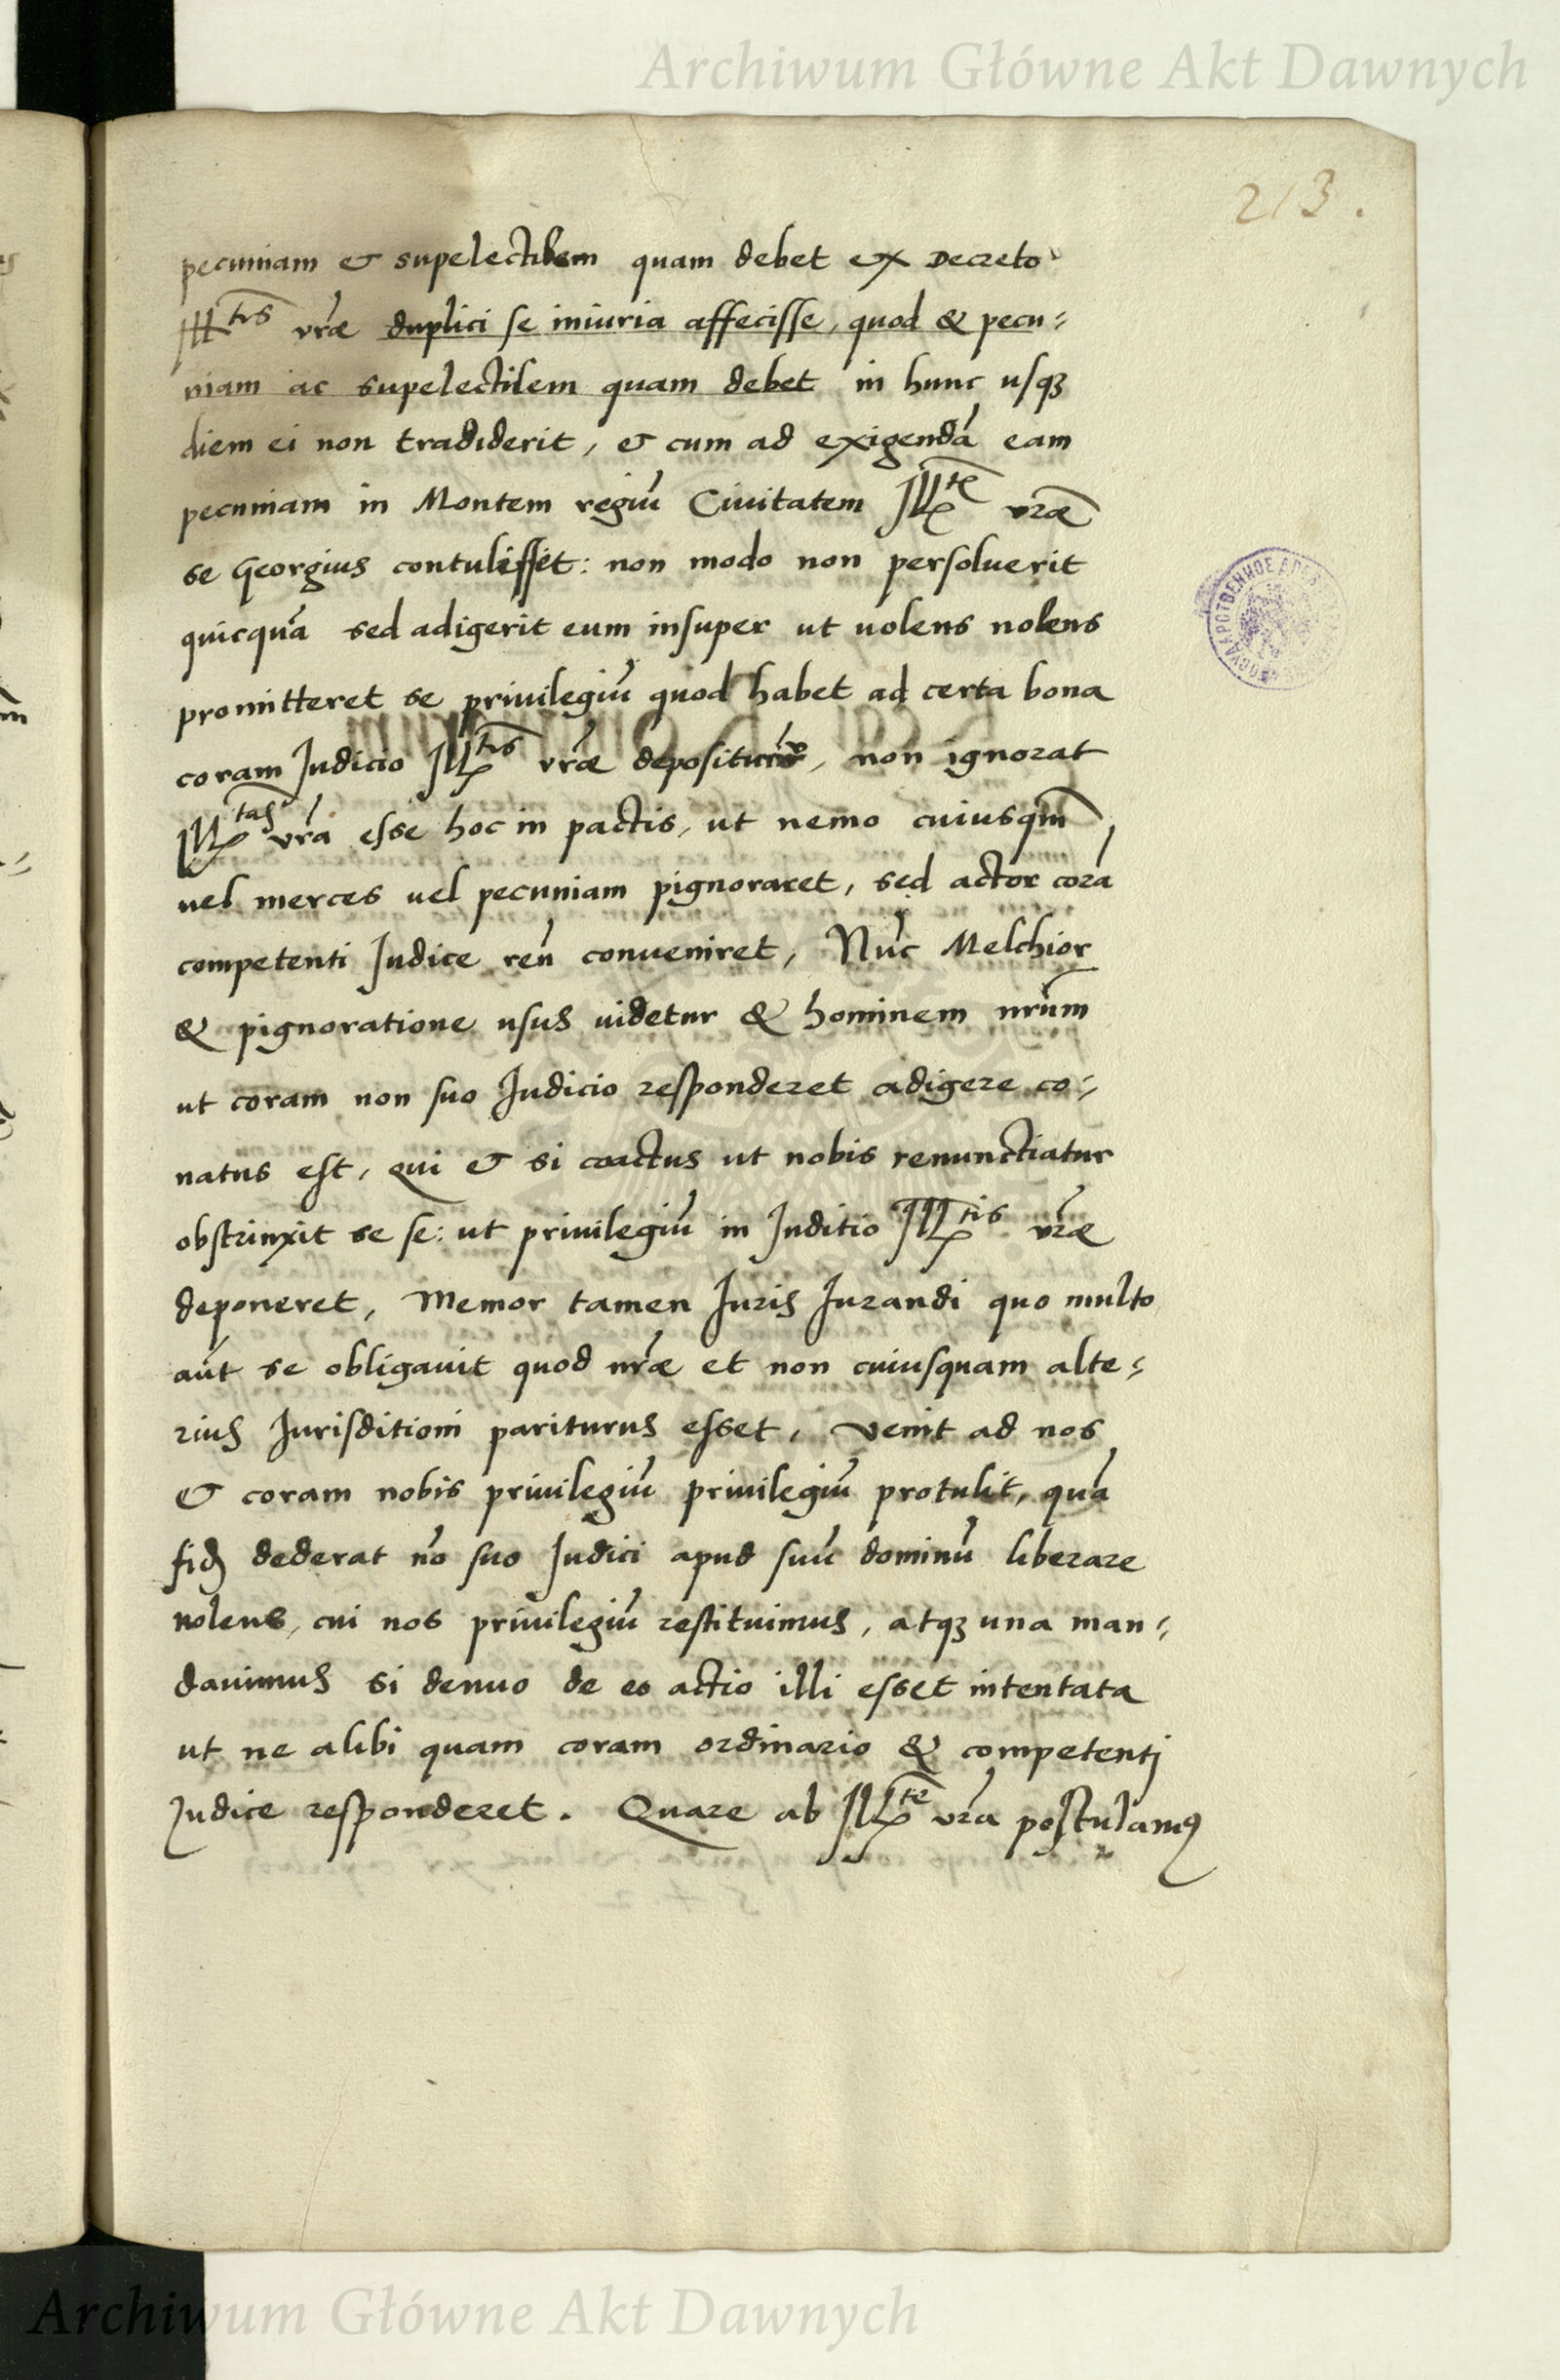 Archiwum Główne Akt Dawnych
213.
pecuniam & supelectilem quam debet ex Decreto
Ill^tis vr̃ae duplici se iniuria affecisse, quod & pecu-
niam ac supelectilem quam debet in hunc usq;
diem ei non tradiderit, & cum ad exigendã eam
pecuniam in Montem regiũ Civitatem Ill^te vrãe
se Georgius contulisset: non modo non persoluerit
quicquã sed adigerit eum insuper ut uolens nolens
promitteret se privilegiũ quod habet ad certa bona
coram Judicio Ill^tis vr̃ae depositurũ, non ignorat
Ill^tas vr̃a esse hoc in pactis, ut nemo cuiusqm̃
vel merces vel pecuniam pignoraret, sed actor corã
competenti Judice reũ conveniret, Nũc Melchior
& pignoratione usus videtur & hominem nr̃um
ut coram non suo Judicio responderet adigere co-
natus est, qui & si coactus ut nobis renunctiatur
obstrinxit se se: ut privilegiũ in Juditio Ill^tis vr̃ae
deponeret, Memor tamen Juris Jurandi quo multo
añt se obligavit quod nr̃ae et non cuiusquam alte-
rius Jurisditioni pariturus esset, venit ad nos
& coram nobis privilegiũ privilegiũ protulit, quã
fid̃ dederat nõ suo Judici apud suũ dominũ liberare
nolens, cui nos privilegiũ restituimus, atq; una man-
davimus si denuo de eo actio illi esset intentata
ut ne alibi quam coram ordinario & competenti
Judice responderet. Quare ab Ill^te vr̃a postulamus
Archiwum Główne Akt Dawnych